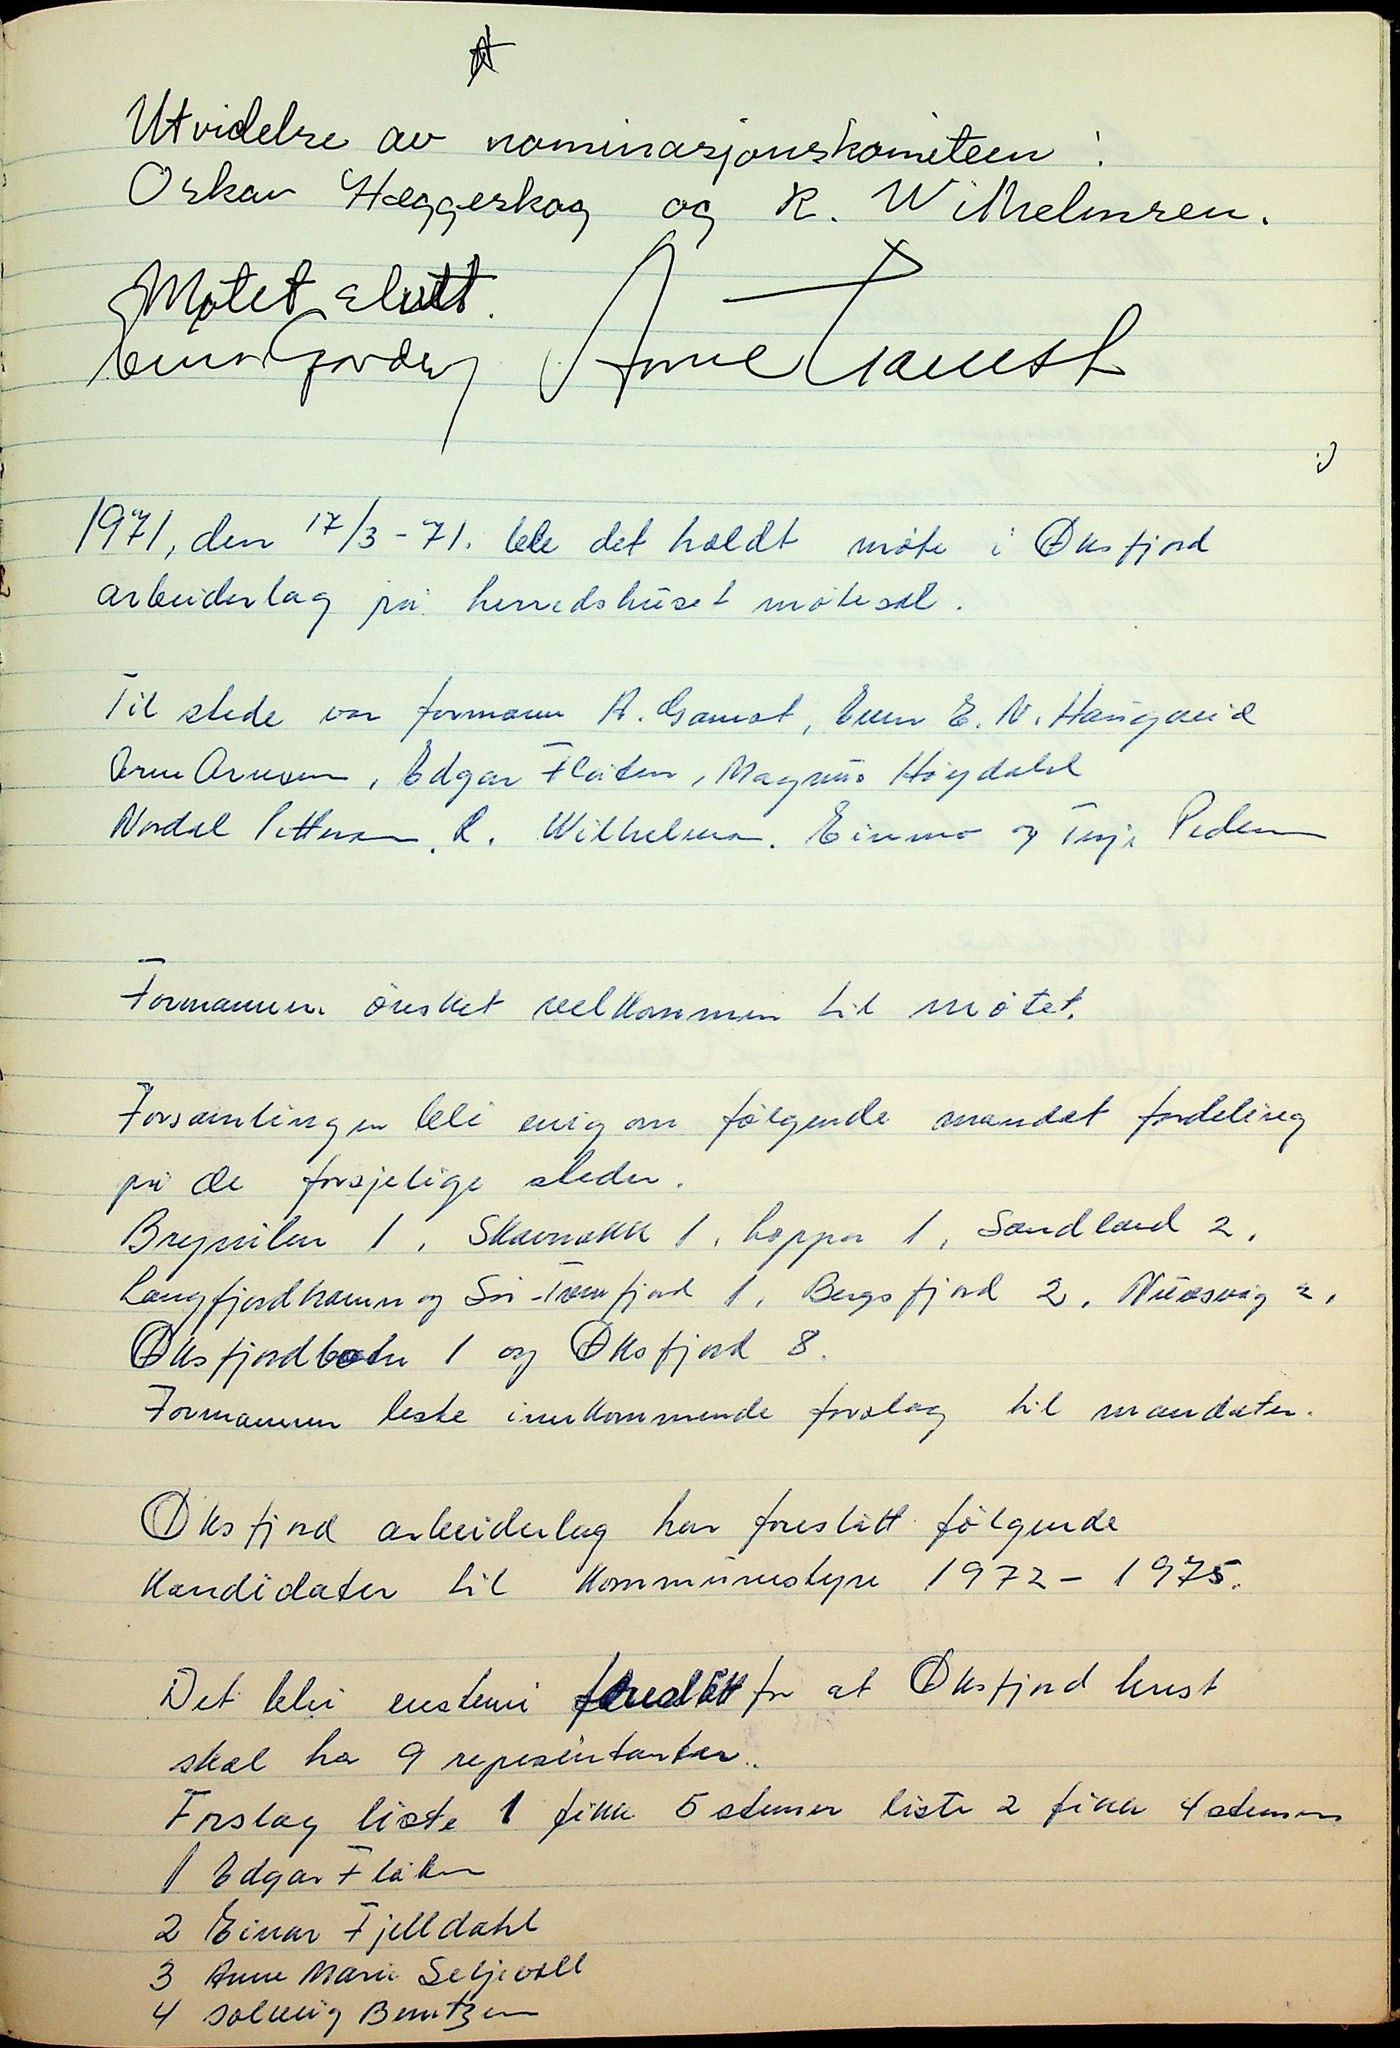 Utvidelse av nominasjonskomiteen:
Oskar Hæggeskog og R. Wilhelmsen.
Møtet slutt.
Arne
1971, den 17/3-71. ble det holdt møte i Øksfjord
arbeiderlag på herredshuset møtesal.
Til stede var formann A. Gamst, E. N. Haugarid
Arne Arnesen, Edgar Flåten, Magnus Høydahl
Nordal Pettersen, R. Wilhelmsen. Einmo og Terje Pedersen
Formannen ønsket velkommen til møtet.
Forsamlingen blei enig om følgende mandat fordeling
på de forsjelige steder.
Breyvilen 1, Skavnakk 1, Loppa 1, Sandland 2,
Langfjordhamn og Sør-Tverrfjord 1, Bergsfjord 2, Nuvsvåg 2,
Øksfjordbotn 1 og Øksfjord 8.
Formannen leste innkommende forslag til mandater.
Øksfjord arbeiderlag har foreslått følgende
kandidater til kommunestyre 1972-1975.
Det blei enstemi foreslått for at Øksfjord krest
skal ha 9 representanter.
Forslag liste 1 fikk 5 stemer liste 2 fikk 4 stemer
1 Edgar Flåten
2 Einar Fjelldahl
3 Anne Marie Seljevoll
4 Solveig Berntzen